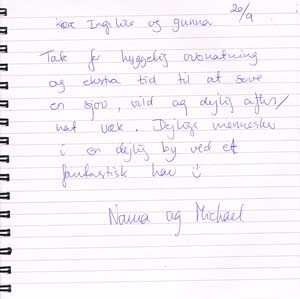 20/9
Kære Ingelise og Gunna
Tak for hyggelig overnatning
og ekstra tid til at sove
en sjov, vild og dejlig aften/
nat væk. Dejlige mennesker
i en dejlig by ved et
fantastisk hav
Nanna og Michael